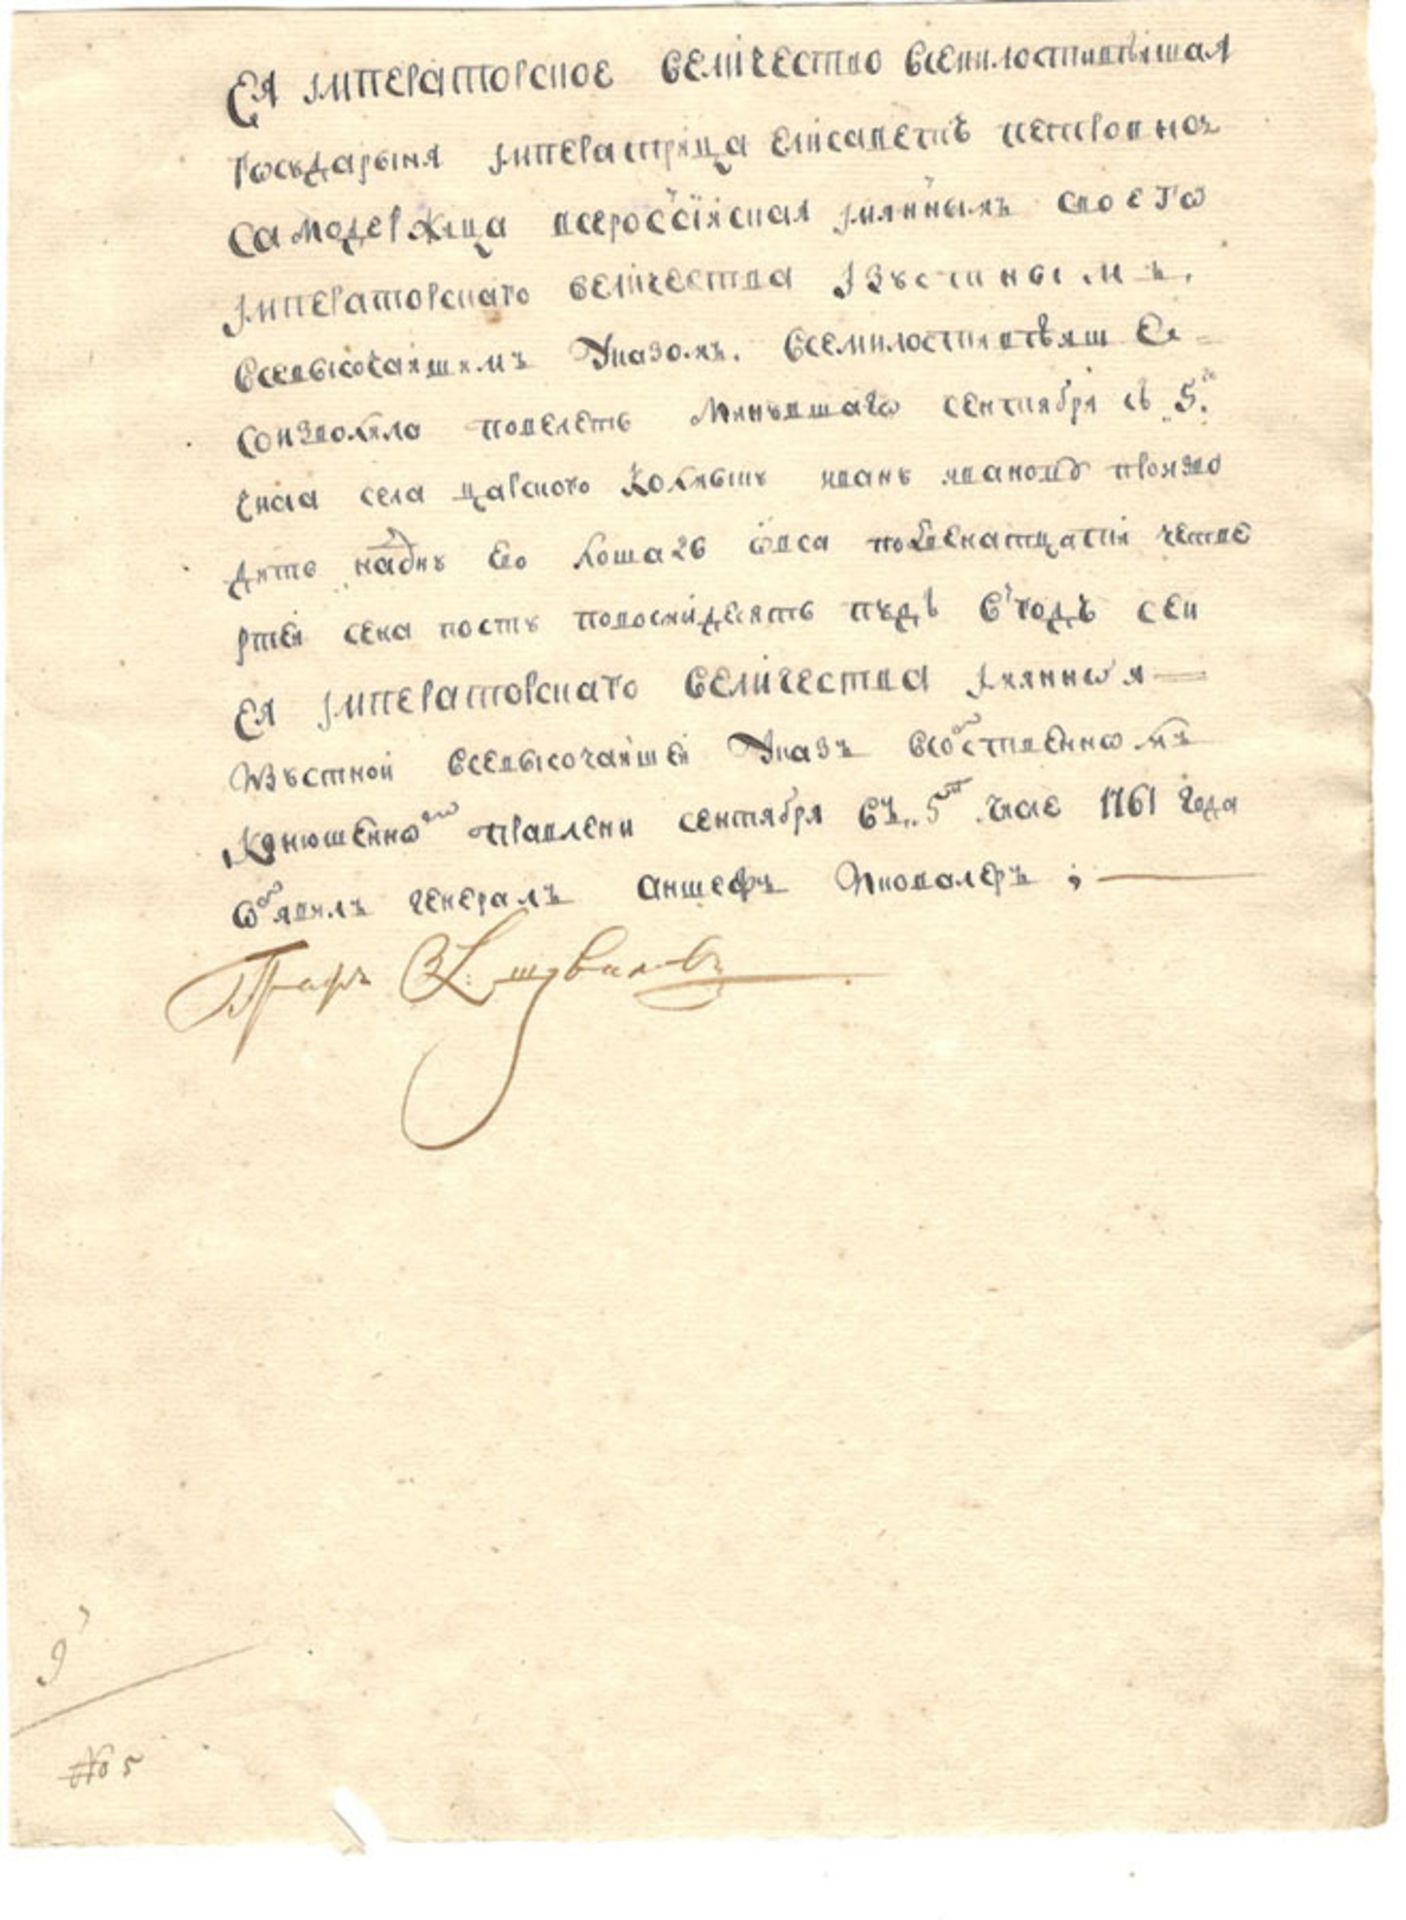 Ея Імператорское величество всемилостивѣишая
Государыня Імператрица Елисаветъ петровна
самодержица всероссіиская имяннымъ своего
Імператорскаго величества Ізустнымъ.
Всевысочаишимъ Указомъ. Всемилостивѣише
соизволила повелеть Нинѣшнаго сентября съ 5.го
числа села царского иванъ ивановъ произво
дить на его лошадь овса по двенатцати четве
ртеи сена по сту по восмидесятъ пудъ в годъ сеи
Ея Імператорскаго величества имянной
изустной всевысочаишеи Указъ в собственномъ
Конюшенномъ правлени сентября въ 5 числе 1761 года
объявилъ генералъ аншефъ икавалеръ ;
Графъ Шуваловъ
9
№ 5